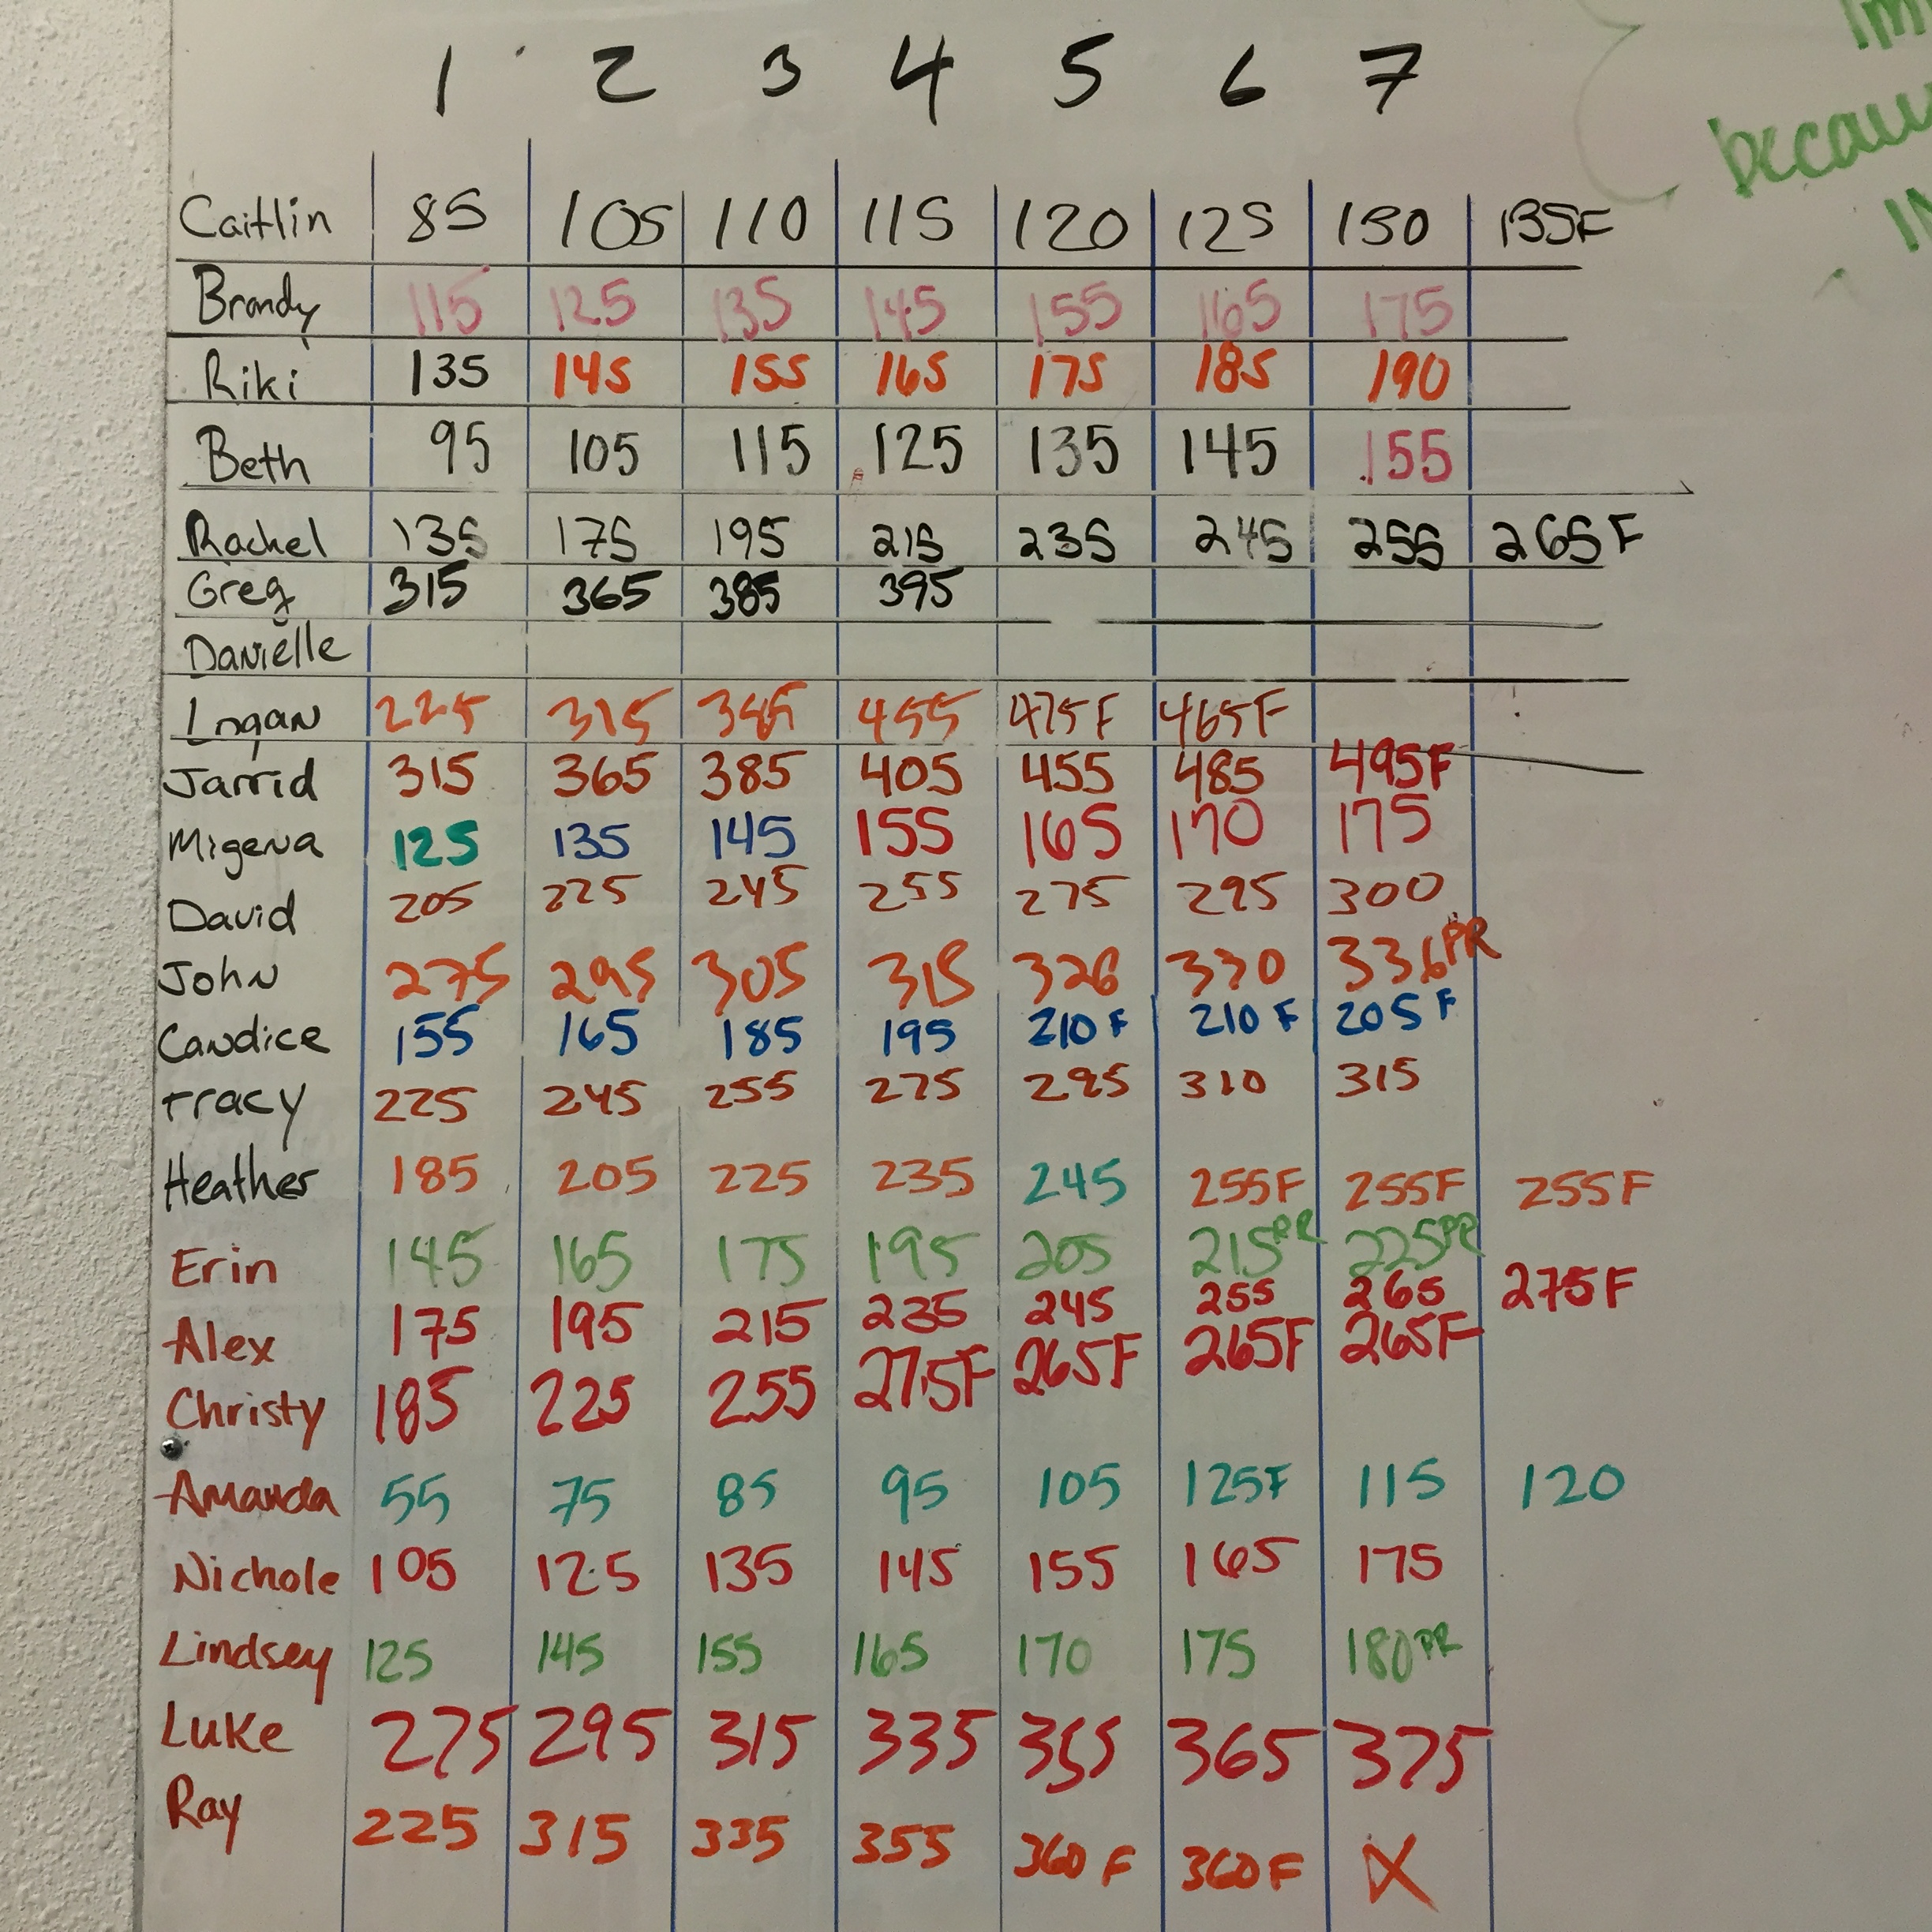 1 2 3 4 5 6 7
Caitlin 85 105 110 115 120 125 130 135F
Brandy 115 125 135 145 155 165 175
Riki 135 145 155 165 175 185 190
Beth 95 105 115 125 135 145 155
Rachel 135 175 195 215 235 245 255 265F
Greg 315 365 385 395
Danielle
Logan 225 315 455 475F 465F
Jarrid 315 365 385 405 455 485 495F
Migena 125 135 145 155 165 170 175
David 205 225 245 255 275 295 300
John 275 295 305 315 326 330 336PR
Candice 155 165 185 195 210F 210F 205F
Tracy 225 245 255 275 295 310 315
Heather 185 205 225 235 245 255F 255F 255F
Erin 145 165 175 195 205 215PR 225PR
Alex 175 195 215 235 245 255 265 275F
Christy 185 225 255 275F 265F 265F 265F
Amanda 55 75 85 95 105 125F 115 120
Nichole 105 125 135 145 155 165 175
Lindsey 125 145 155 165 170 175 180PR
Luke 275 295 315 335 355 365 375
Ray 225 315 335 355 360F 360F X